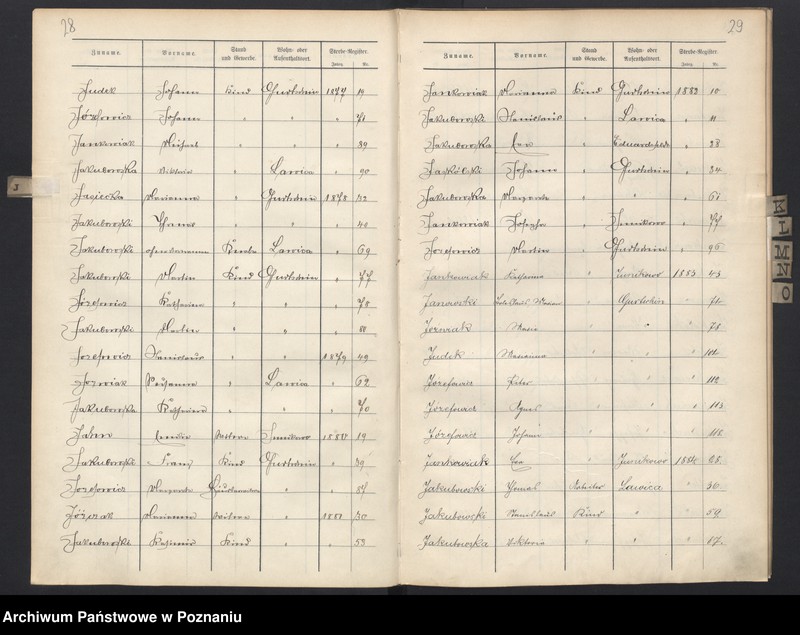 28
Zuname. Vorname. Stand und Gewerbe. Wohn- oder Aufenthaltsort. Sterbe-Register. Jahrg. Nr.
Judek Johann Kind Gurtschin 1877 19
Józefowicz Johann " " " 71
Jankowiak Michael " " " 39
Jakubowska Viktoria " Lawica " 90
Jagiecka Marianna " Gurtschin 1878 32
Jakubowski Thomas " " " 40
Jakubowski Lawica " 69
Jakubowski Martin Kind Gurtschin " 77
Józefowicz Katharina " " " 78
Jakubowski Martin " " " 88
Jozefowicz Stanislaus " " 1879 49
Jozwiak " Lawica " 62
Jakubowska Katharina " " " 70
Junikowo 19
Jakubowski Franz Kind Gurtschin " 39
Jozefowicz Margarete " "
Marianna " 1881 30
Jakubowski Kasimir Kind " " 53
J
29
Zuname. Vorname. Stand und Gewerbe. Wohn- oder Aufenthaltsort. Sterbe-Register. Jahrg. Nr.
Jankowiak Marianna Kind Gurtschin 1882 10
Jakubowski Stanislaus " Lawica " 11
Jakubowska Eva " Eduardsfelde " 23
Jaskólski Johann " Gurtschin " 34
Jakubowska Margarete " " " 61
Jankowiak Josepha " Junikowo " 77
Jozefowicz Martin " Gurtschin " 96
Jankowiak Katharina " Junikowo 1883 43
Janowski " Gurtschin " 71
Jozwiak Marie " " " 78
Judek Marianna " " " 104
Jozefowicz Peter " " " 112
Józefowicz Agnes " " " 113
Józefowicz Johann " " " 118
Jankowiak Eva " Junikowo 1884 28
Jakubowski Thomas Arbeiter Lawica " 36
Jakubowski Stanislaus Kind " " 59
Jakubowska Viktoria " " " 17
K
L
M
N
O
Archiwum Państwowe w Poznaniu